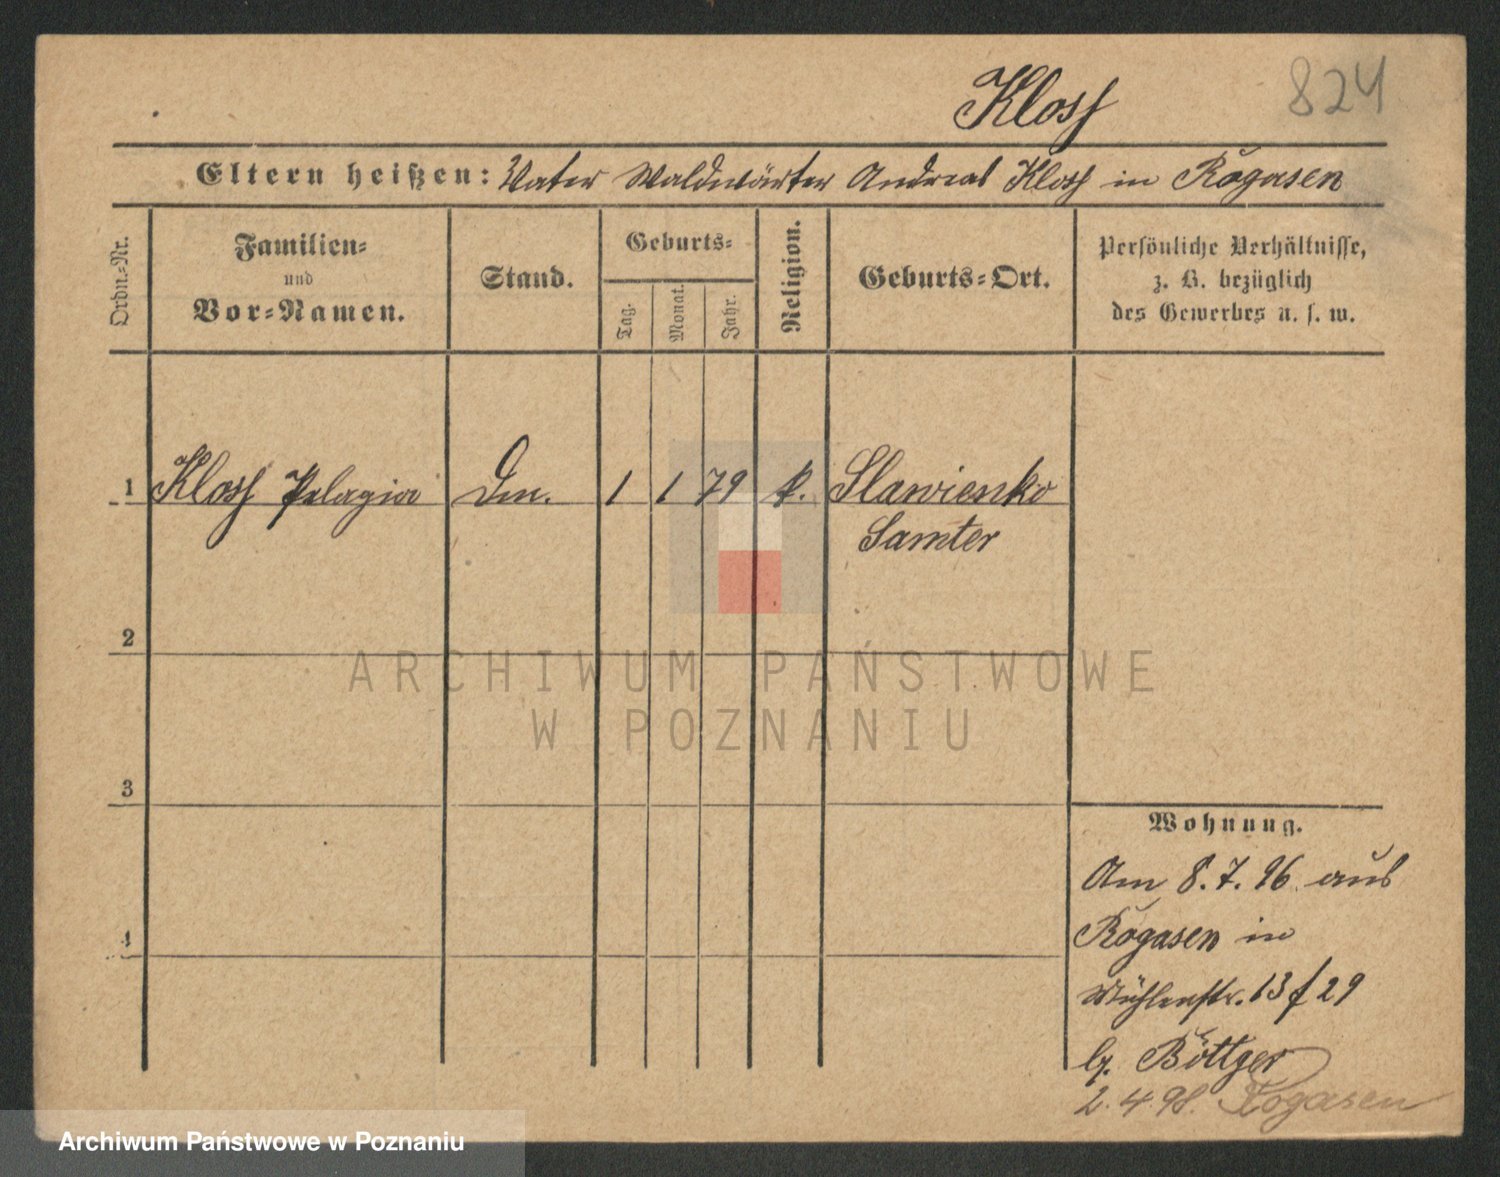 824
Kloss
Eltern heißen: Vater Waldwärter Andreas Kloss in Rogasen
Ordn.-Nr.
Familien-
und
Vor-Namen.
Stand.
Geburts-
Tag.
Monat.
Jahr.
Religion.
Geburts-Ort.
Persönliche Verhältnisse,
z. B. bezüglich
des Gewerbes u. s. w.
1 Kloss Pelagia Dm. 1 1 79 k. Slawienko
Samter
2
3
4
ARCHIWUM PAŃSTWOWE
W POZNANIU
Wohnung.
Am 8.7.96 aus
Rogasen in
Mühlenstr. 13 f 29
b. Böttger
2.4.98. Rogasen
Archiwum Państwowe w Poznaniu